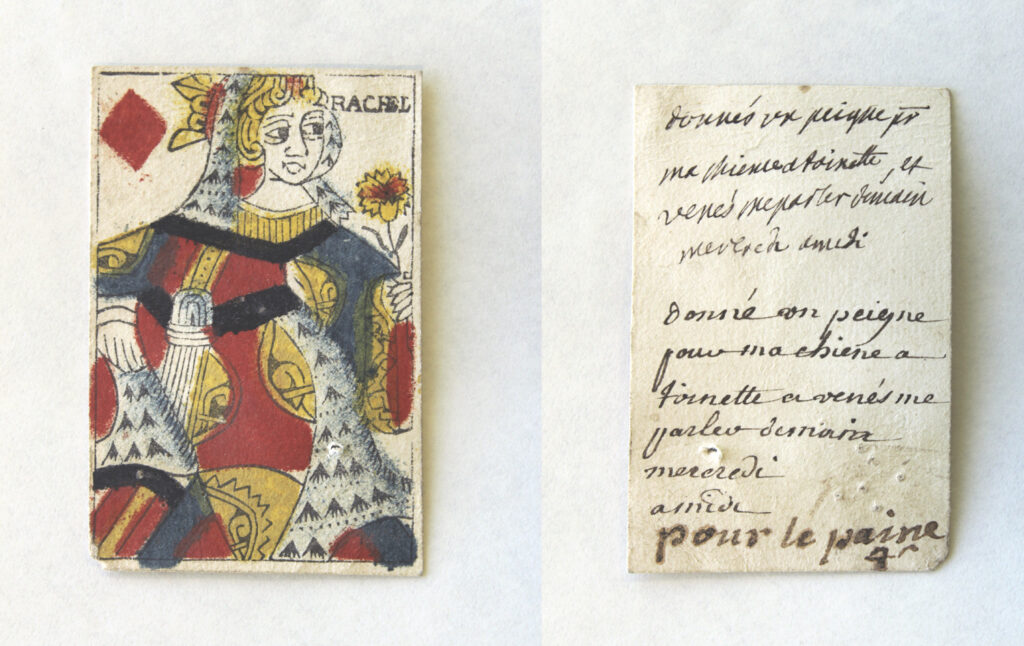 RACHEL
donnés un peigne pr
ma chienne a toinette, et
venés me parler demain
mercredi a midi
donné un peigne
pour ma chiene a
toinette a venés me
parler demain
mercredi
a midi
pour le paine